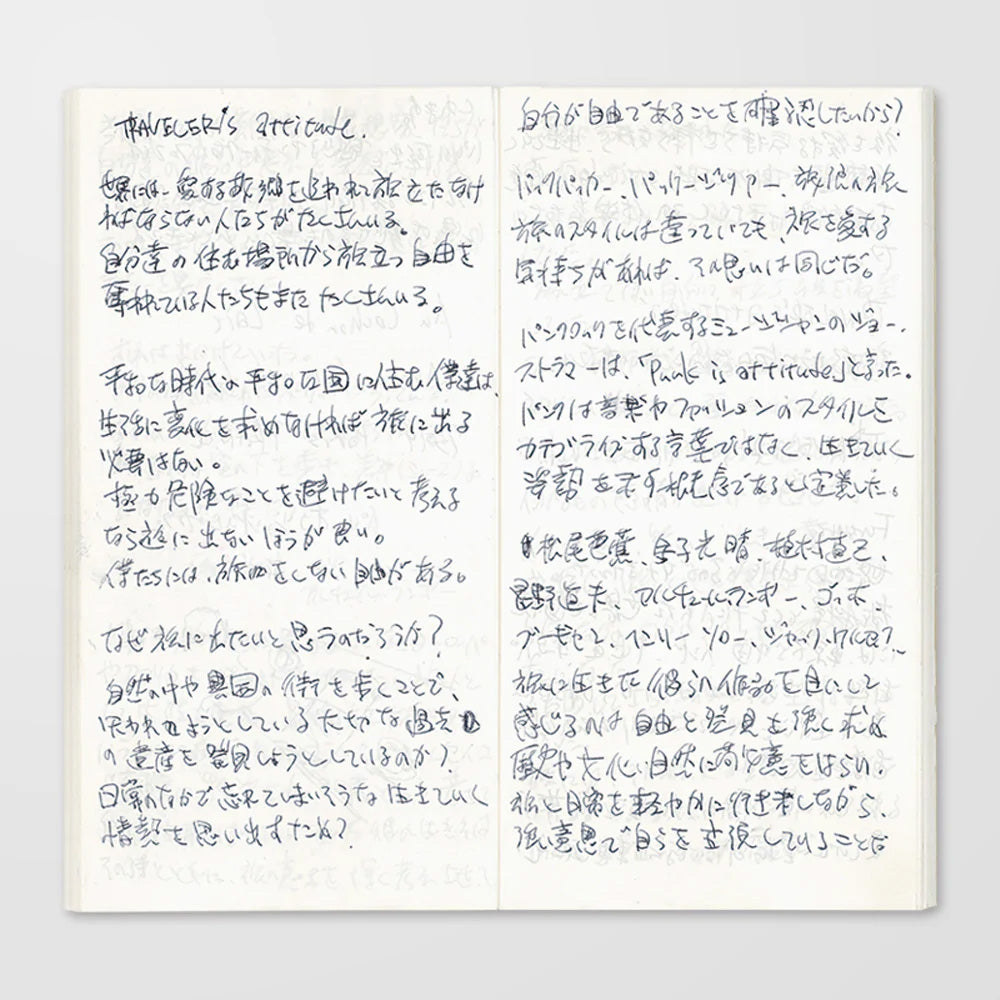 TRAVELER'S attitude.
世界には、愛する故郷を追われ旅立たなけ
ればならない人たちがたくさんいる。
自分達の住む場所から旅立つ自由を
奪われている人たちもまたたくさんいる。
平和な時代の平和な国に住む僕達は、
生活に変化を求めなければ旅に出る
必要はない。
極力危険なことを避けたいと考える
なら旅に出ないほうが良い。
僕たちには、旅をしない自由がある。
なぜ旅に出たいと思うのだろうか?
自然の中や異国の街を歩くことで、
失われようとしている大切な過去
の遺産を発見しようとしているのか?
日常のなかで忘れてしまいそうな生きていく
情熱を思い出すため?
自分が自由であることを確認したいから?
バックパッカー、パッケージツアー、放浪の旅
旅のスタイルは違っていても、旅を愛する
気持ちがあれば、その思いは同じだ。
パンクロックを代表するミュージシャンのジョー・
ストラマーは、「Punk is attitude」と言った。
パンクは音楽やファッションのスタイルを
カテゴライズする言葉ではなく、生きていく
姿勢を示す概念であると定義した。
松尾芭蕉、金子光晴、植村直己、
星野道夫、アルチュール・ランボー、ゴッホ、
ブーギャン、ヘンリー・ソロー、ジャック・ケルアック、
旅に生きた彼らの作品を目にして
感じるのは自由と発見を強く求め
歴史や文化、自然に敬意をはらい、
旅と日常を軽やかに行き来しながら
強い意思で自らを主張していることだ